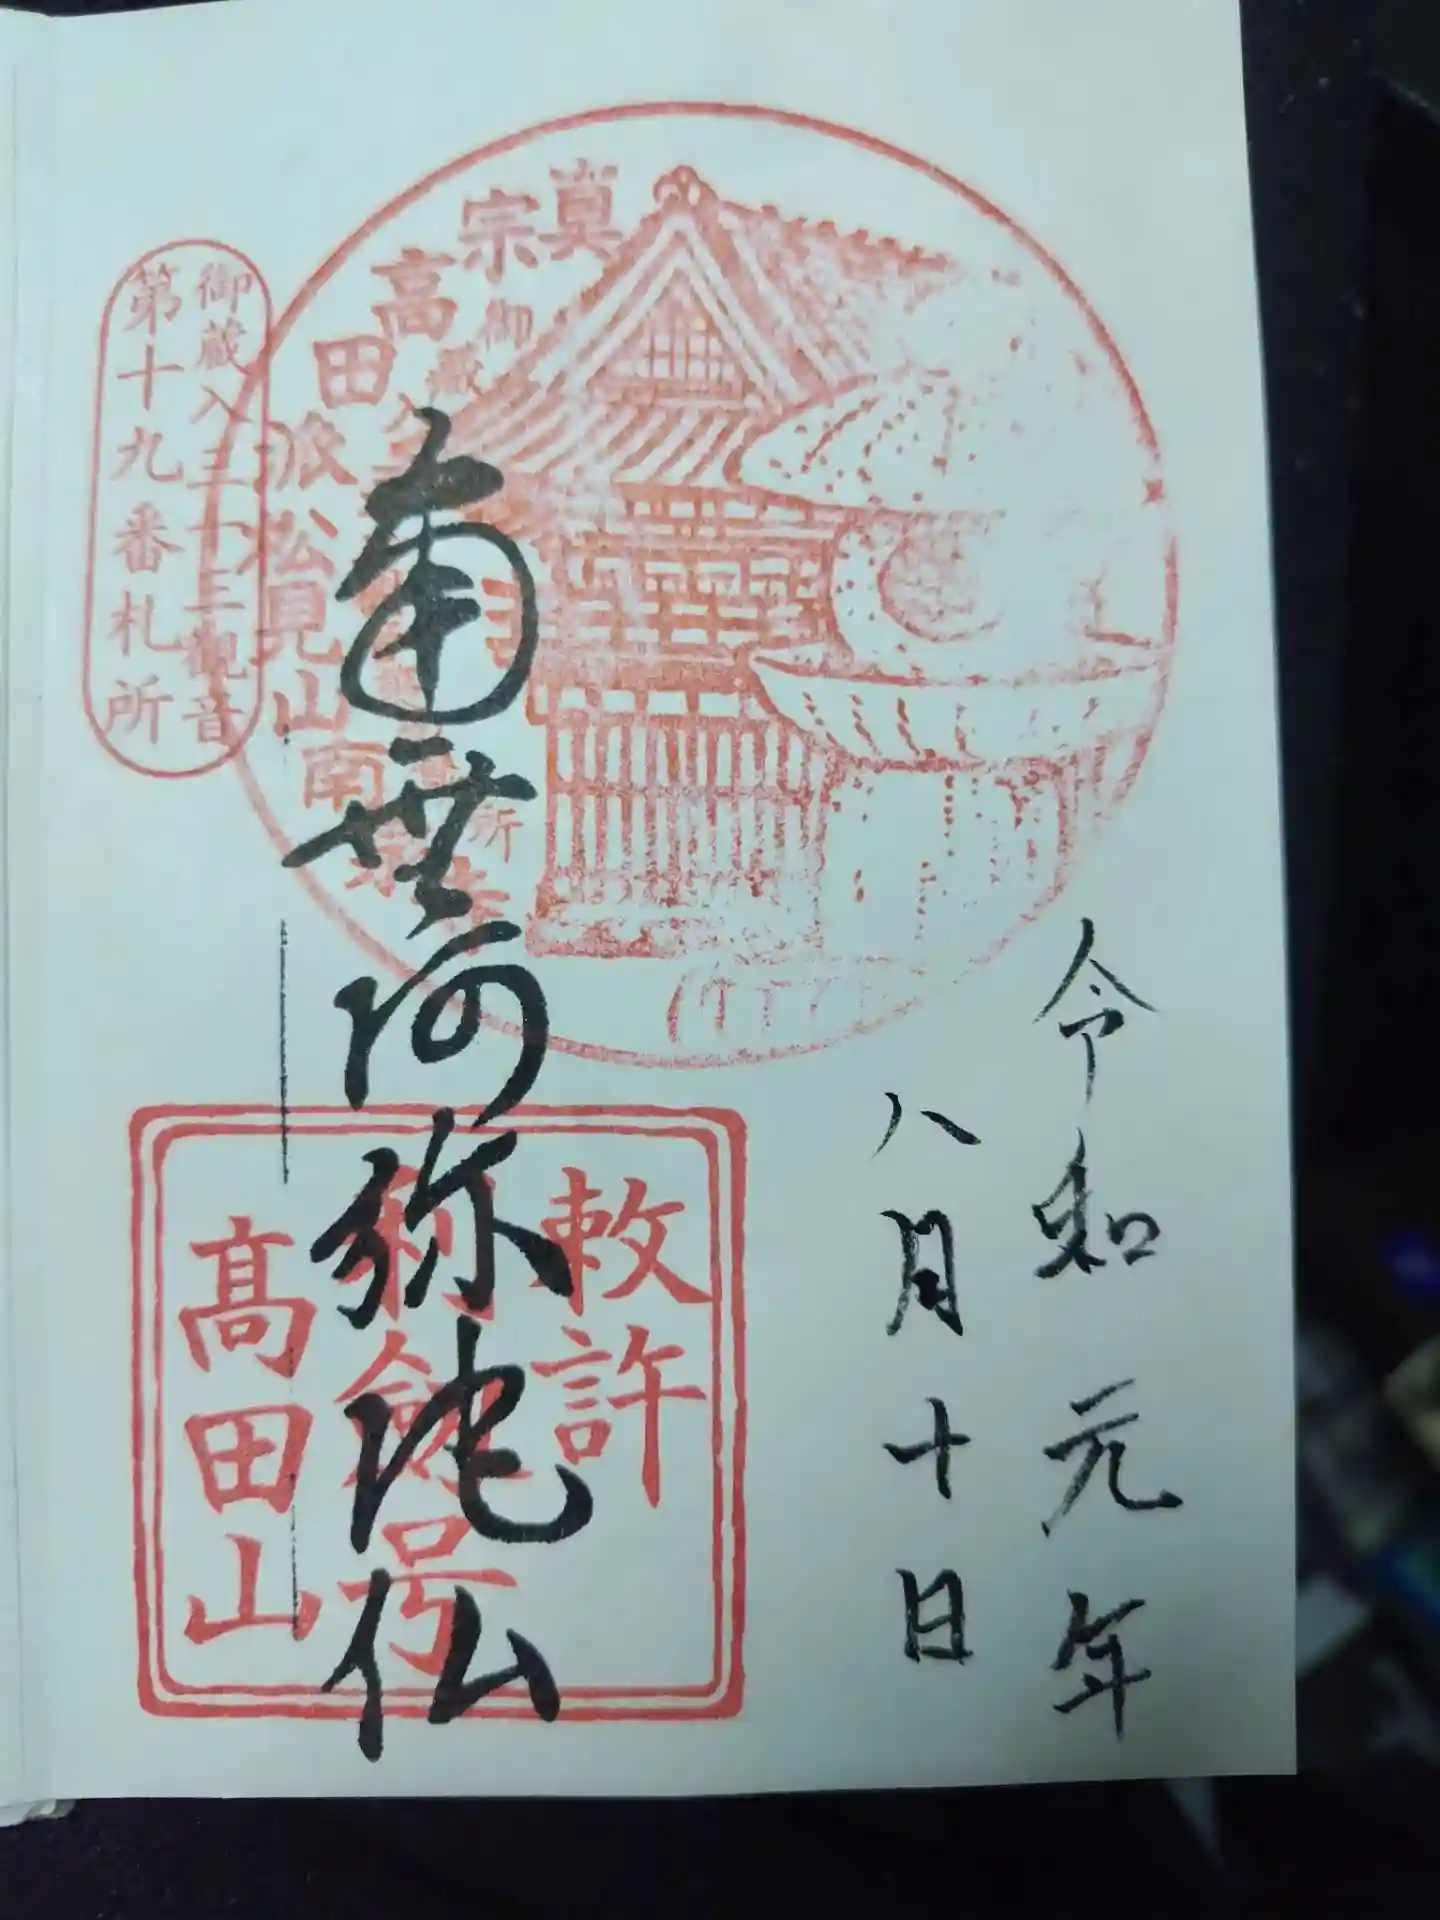 令和元年
八月十日
南無阿弥陀仏
真宗高田派松見山南泉寺
御蔵入三十三観音
第十九番札所
敕許
号
高田山